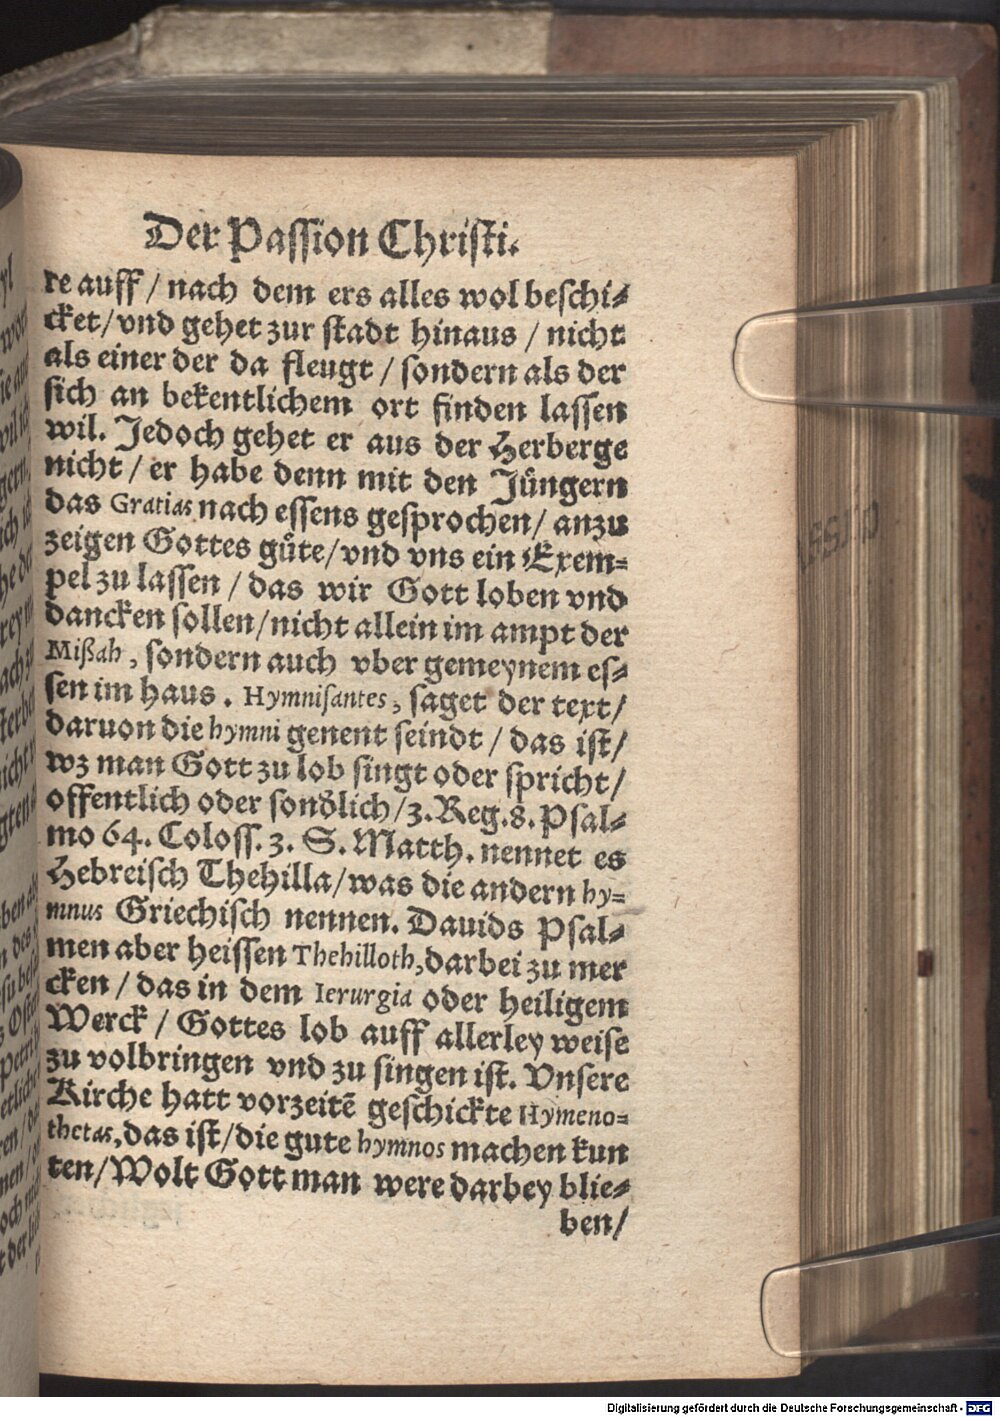 Der Passion Christi.
re auff / nach dem ers alles wol beschi⸗
cket/vnd gehet zur stadt hinaus / nicht
als einer der da fleugt / sondern als der
sich an bekentlichem ort finden lassen
wil. Jedoch gehet er aus der Herberge
nicht / er habe denn mit den Jüngern
das Gratias nach essens gesprochen/ anzu
zeigen Gottes güte/vnd vns ein Exem⸗
pel zu lassen / das wir Gott loben vnd
dancken sollen/nicht allein im ampt der
Mißah, sondern auch vber gemeynem es⸗
sen im haus. Hymnisantes, saget der text/
daruon die hymni genent seindt / das ist/
wz man Gott zu lob singt oder spricht/
offentlich oder sond̄lich/3.Reg.8.Psal⸗
mo 64. Coloss. 3. S. Matth. nennet es
Hebreisch Thehilla/was die andern hy-
mnus Griechisch nennen. Dauids Psal⸗
men aber heissen Thehilloth, darbei zu mer
cken / das in dem Ierurgia oder heiligem
Werck / Gottes lob auff allerley weise
zu volbringen vnd zu singen ist. Vnsere
Kirche hatt vorzeitē geschickte Hymeno⸗
thetas, das ist/die gute hymnos machen kun
ten/Wolt Gott man were darbey blie⸗
ben/
Digitalisierung gefördert durch die Deutsche Forschungsgemeinschaft - DFG